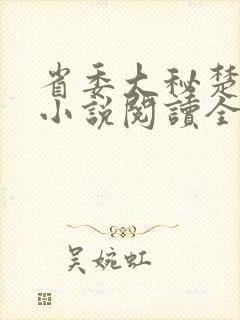 省委大秘楚
小說閱讀全
吴婉虹